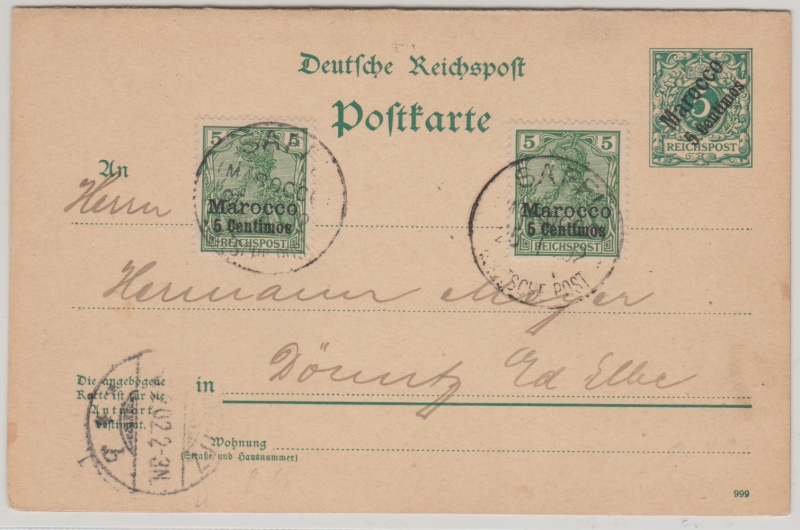 Deutsche Reichspost
Postkarte
5
Marocco
5 Centimos
REICHSPOST
5 5
Marocco
5 Centimos
REICHSPOST
SAFFI
MAROCCO
5 5
Marocco
5 Centimos
REICHSPOST
SAFFI
DEUTSCHE POST
An
Herrn
Hermann Meyer
in Dömitz Ed Elbe
Die angebogene
Karte ist für die
Antwort
bestimmt.
02.2-3N.
b
Wohnung
(Straße und Hausnummer)
999